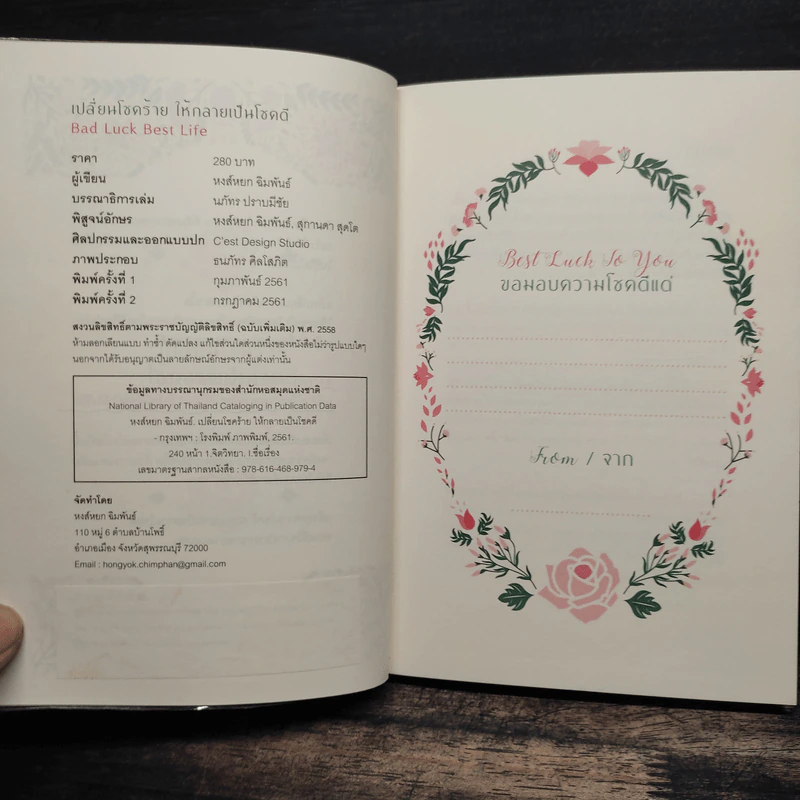 เปลี่ยนโชคร้าย ให้กลายเป็นโชคดี
Bad Luck Best Life
ราคา 280 บาท
ผู้เขียน หงส์หยก ฉิมพันธ์
บรรณาธิการเล่ม นภัทร ปราบมีชัย
พิสูจน์อักษร หงส์หยก ฉิมพันธ์, สุกานดา สุดโต
ศิลปกรรมและออกแบบปก C'est Design Studio
ภาพประกอบ ธนภัทร ศิลโสภิต
พิมพ์ครั้งที่ 1 กุมภาพันธ์ 2561
พิมพ์ครั้งที่ 2 กรกฎาคม 2561
สงวนลิขสิทธิ์ตามพระราชบัญญัติลิขสิทธิ์ (ฉบับเพิ่มเติม) พ.ศ. 2558
ห้ามลอกเลียนแบบ ทำซ้ำ ดัดแปลง แก้ไขส่วนใดส่วนหนึ่งของหนังสือไม่ว่ารูปแบบใดๆ
นอกจากได้รับอนุญาตเป็นลายลักษณ์อักษรจากผู้แต่งเท่านั้น
ข้อมูลทางบรรณานุกรมของสำนักหอสมุดแห่งชาติ
National Library of Thailand Cataloging in Publication Data
หงส์หยก ฉิมพันธ์. เปลี่ยนโชคร้าย ให้กลายเป็นโชคดี
- กรุงเทพฯ : โรงพิมพ์ ภาพพิมพ์, 2561.
240 หน้า 1.จิตวิทยา. I.ชื่อเรื่อง
เลขมาตรฐานสากลหนังสือ : 978-616-468-979-4
จัดทำโดย
หงส์หยก ฉิมพันธ์
110 หมู่ 6 ตำบลบ้านโพธิ์
อำเภอเมือง จังหวัดสุพรรณบุรี 72000
Email : hongyok.chimphan@gmail.com
Best Luck To You
ขอมอบความโชคดีแด่
From / จาก